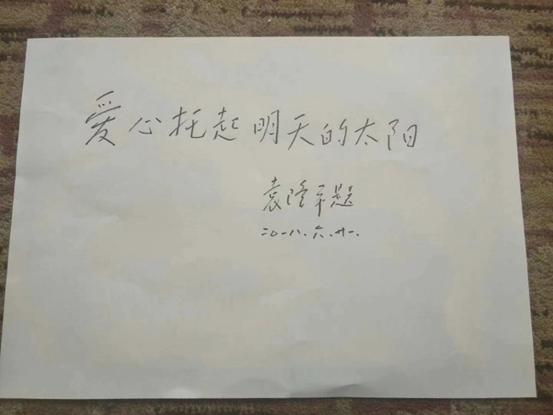 爱心托起明天的太阳
袁隆平题
二〇一八.六.廿一.